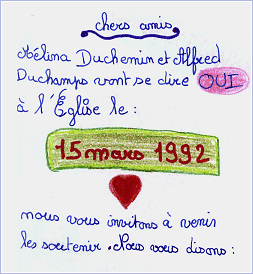 chers amis
Mélina Duchemin et Alfred
Duchamps vont se dire OUI
à l'Église le :
15 mars 1992
nous vous invitons à venir
les soutenir. Nous vous disons :